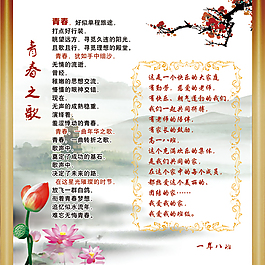 青春之歌
青春，好似单程旅途，
打点好行装，
眺望远方，寻觅久违的阳光，
且歌且行，寻觅理想的殿堂。
青春，犹如手中细沙，
无情的流逝，
曾经，
稚嫩的思想交流，
懵懂的眼神交错，
现在，
无声的成熟稳重，
演绎着，
羞涩悸动的青春。
青春，一曲年华之歌，
青春，一曲转折之歌，
歌声中，
奠定了成功的基石，
歌声中，
决定了未来的路。
在这星光璀璨的时节，
放飞一群白鸽，
衔着青春梦想，
追忆似水流年，
难忘无悔青春。
这是一个快乐的大家庭
有勤劳、慈爱的老师，
有快乐、朝气蓬勃的我们，
我们一起拥有共同的梦，
有老师的陪伴，
有家长的鼓励，
高一八班，
这个充满欢乐的集体，
是我们共同的家，
在这个家中的每个成员，
都热爱这个美丽的、
团结的家……
我爱我的家，
我爱我的班级。
一年八班